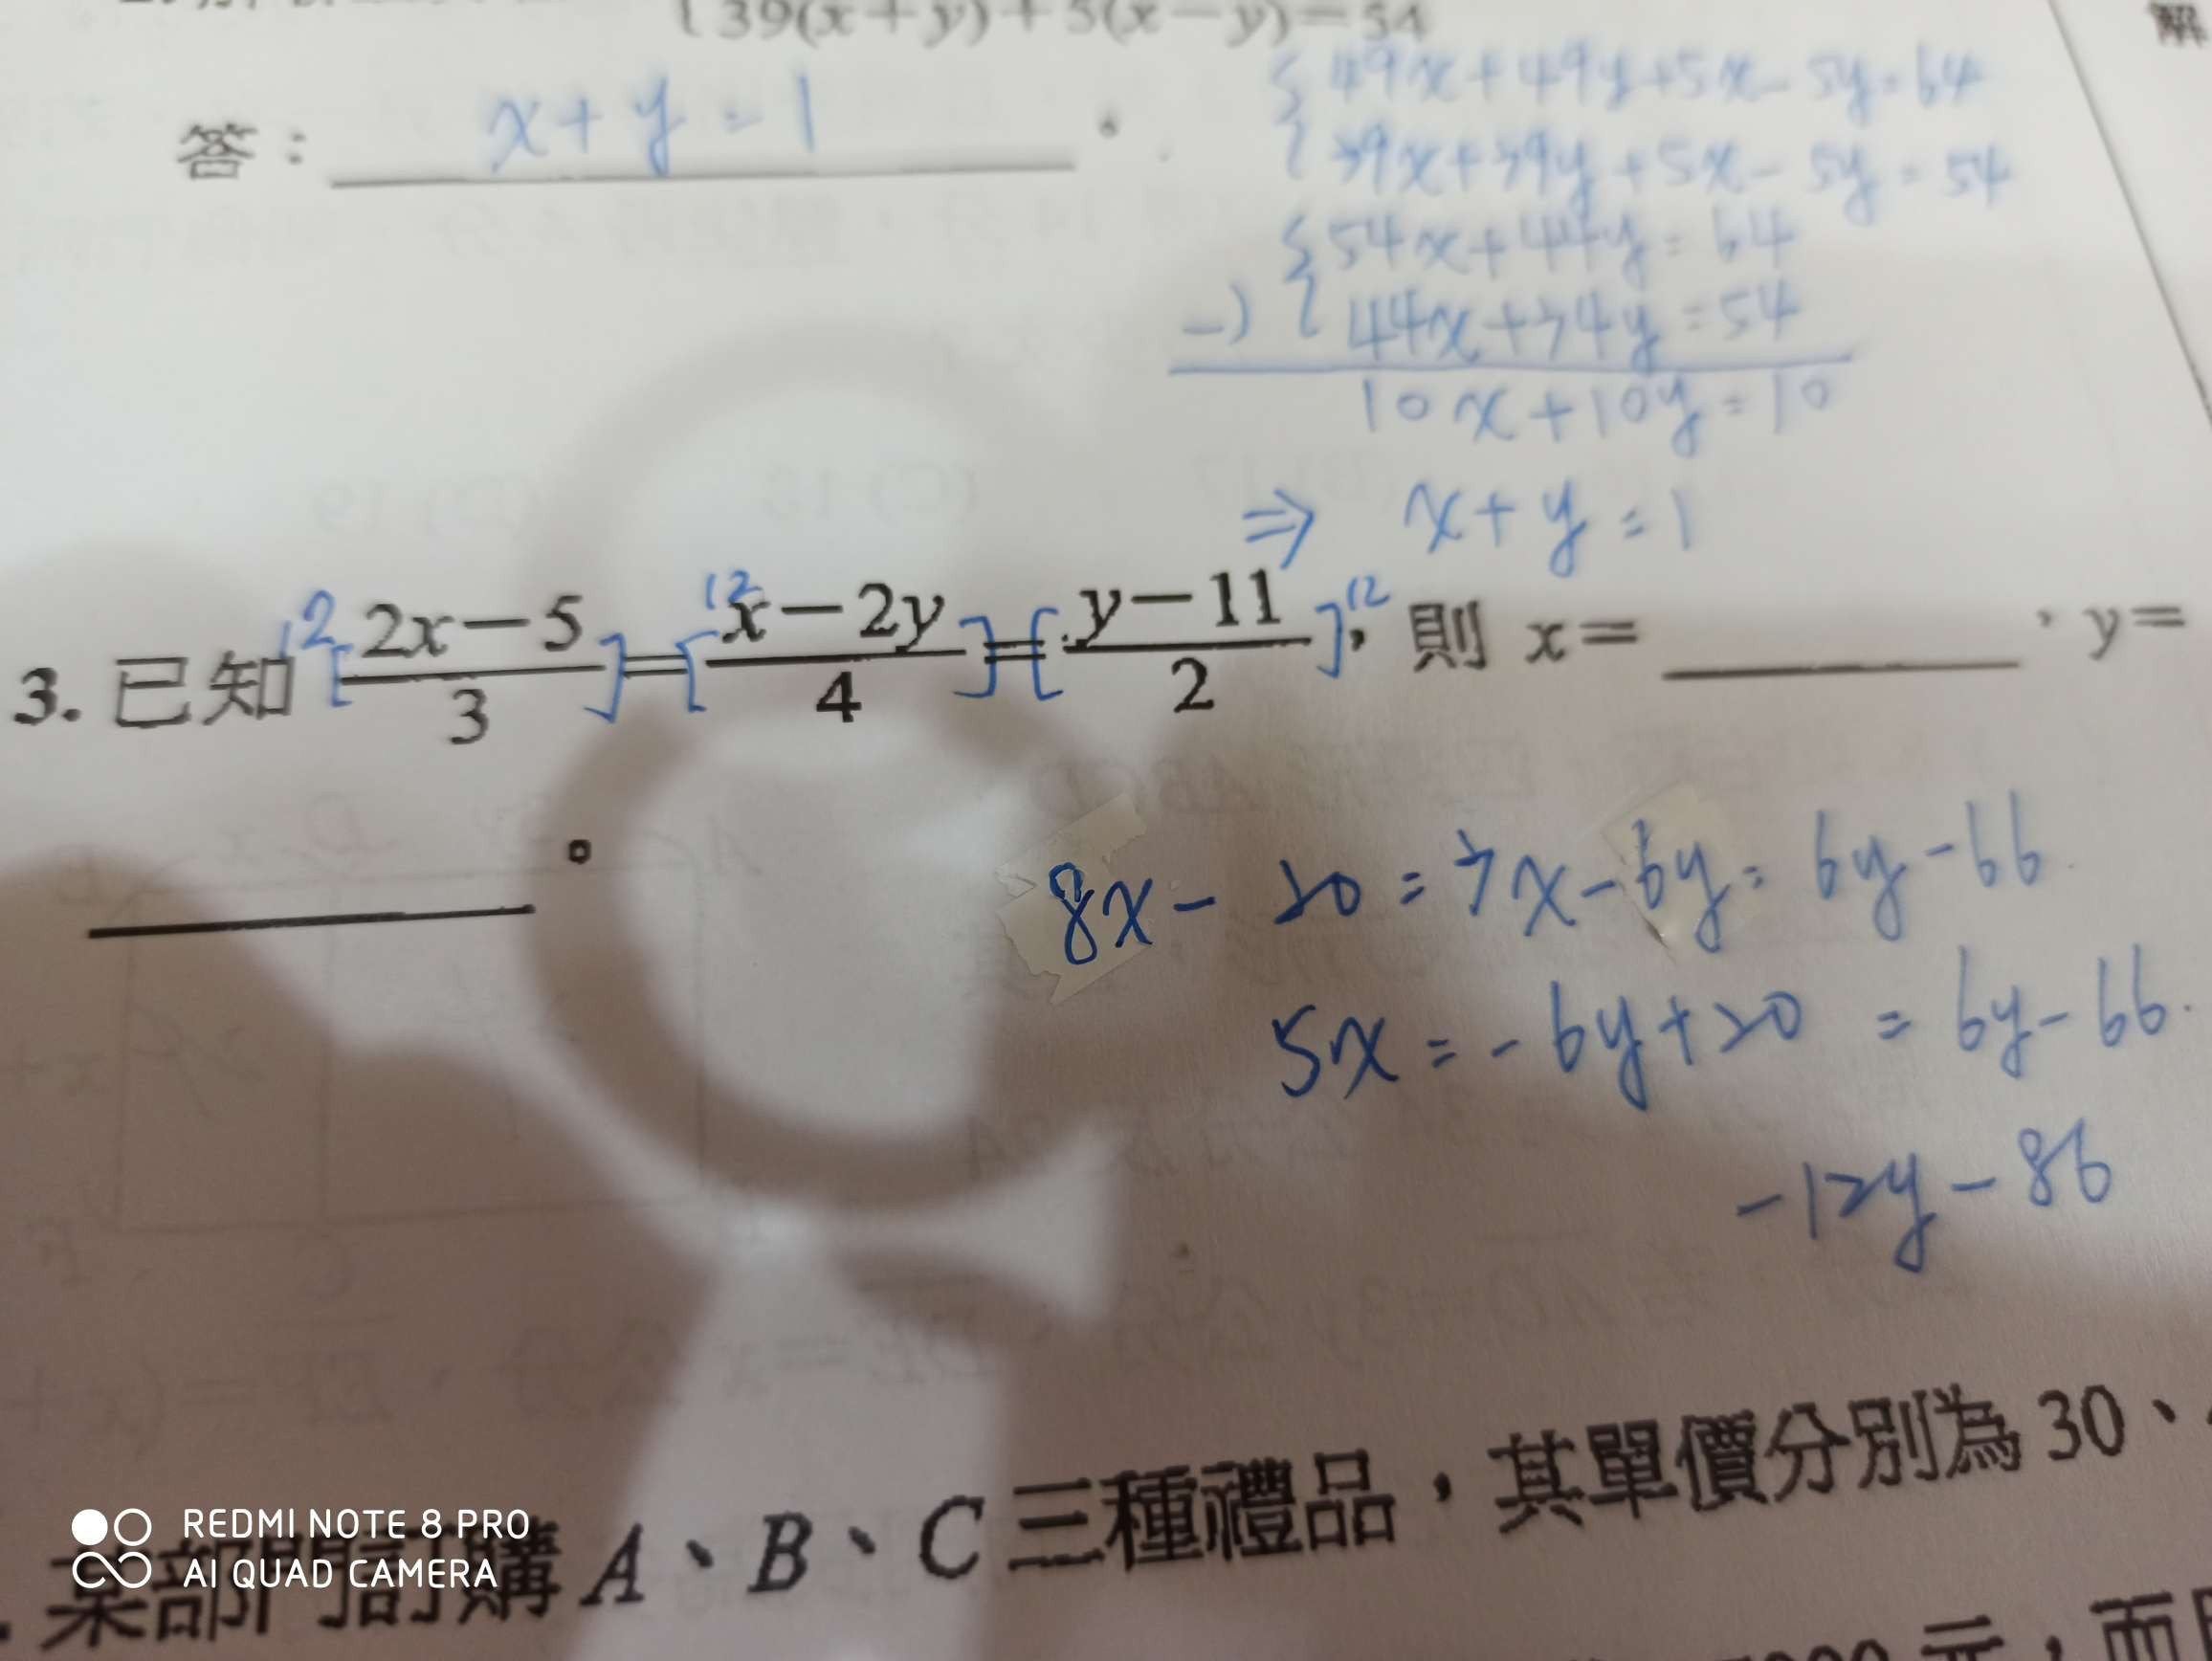 39(x+y)+5(x-y)=54
解
答：x+y=1。
{49x+49y+5x-5y=64
{39x+39y+5x-5y=54
{54x+44y=64
-){44x+34y=54
10x+10y=10
⇒ x+y=1
3. 已知 12[2x-5/3]=[x-2y/4]12=[y-11/2]12，則 x=______，y=
______。
8x-20=3x-6y=6y-66
5x=-6y+20=6y-66.
-12y-86
某部門訂購 A、B、C 三種禮品，其單價分別為 30、
元，而
REDMI NOTE 8 PRO
AI QUAD CAMERA